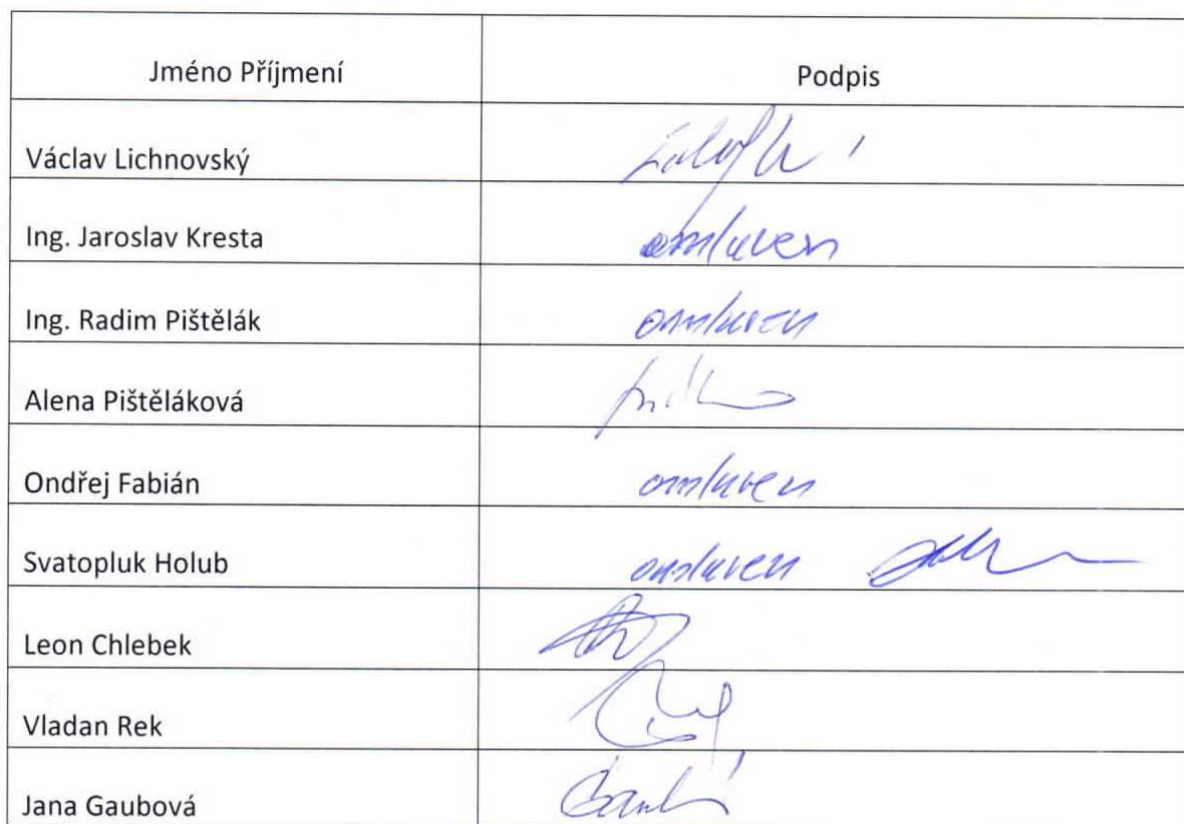 Jméno Příjmení Podpis
Václav Lichnovský
Ing. Jaroslav Kresta omluven
Ing. Radim Pištělák omluven
Alena Pištěláková
Ondřej Fabián omluven
Svatopluk Holub omluven
Leon Chlebek
Vladan Rek
Jana Gaubová